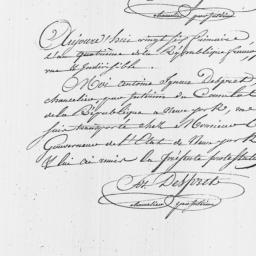 chancelier par interim
Aujourd'hui vingt six frimaire
L'an quatrième de la République française
une et Indivisible.
Moi antoine Ignace Desprets
chancelier par interim du Consulat
de la République a Newe york, me
suis transporté chez Monsieur
Gouverneur de l'Etat de Newe york
et lui ai remis la présente protestation
Ant. Desprets
chancelier par interim